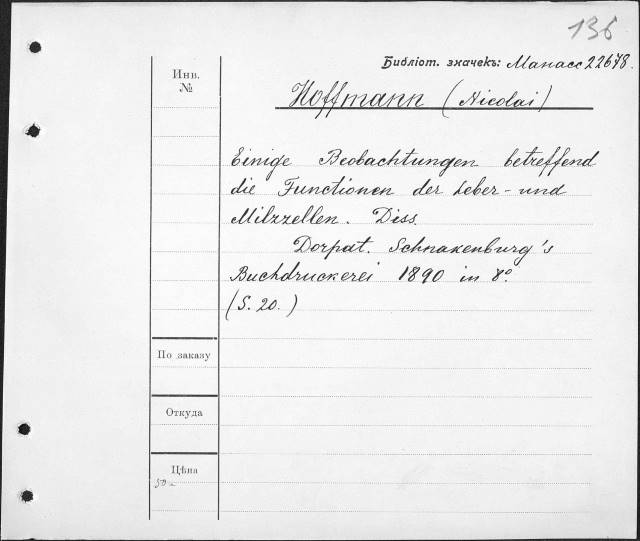 136
Библіот. значекъ: Манасс 22678.
Инв.
№
Hoffmann (Nicolai)
Einige Beobachtungen betreffend
die Functionen der Leber- und
Milzzellen. Diss.
Dorpat. Schnakenburg's
Buchdruckerei 1890 in 8°.
(S. 20.)
По заказу
Откуда
Цѣна
50